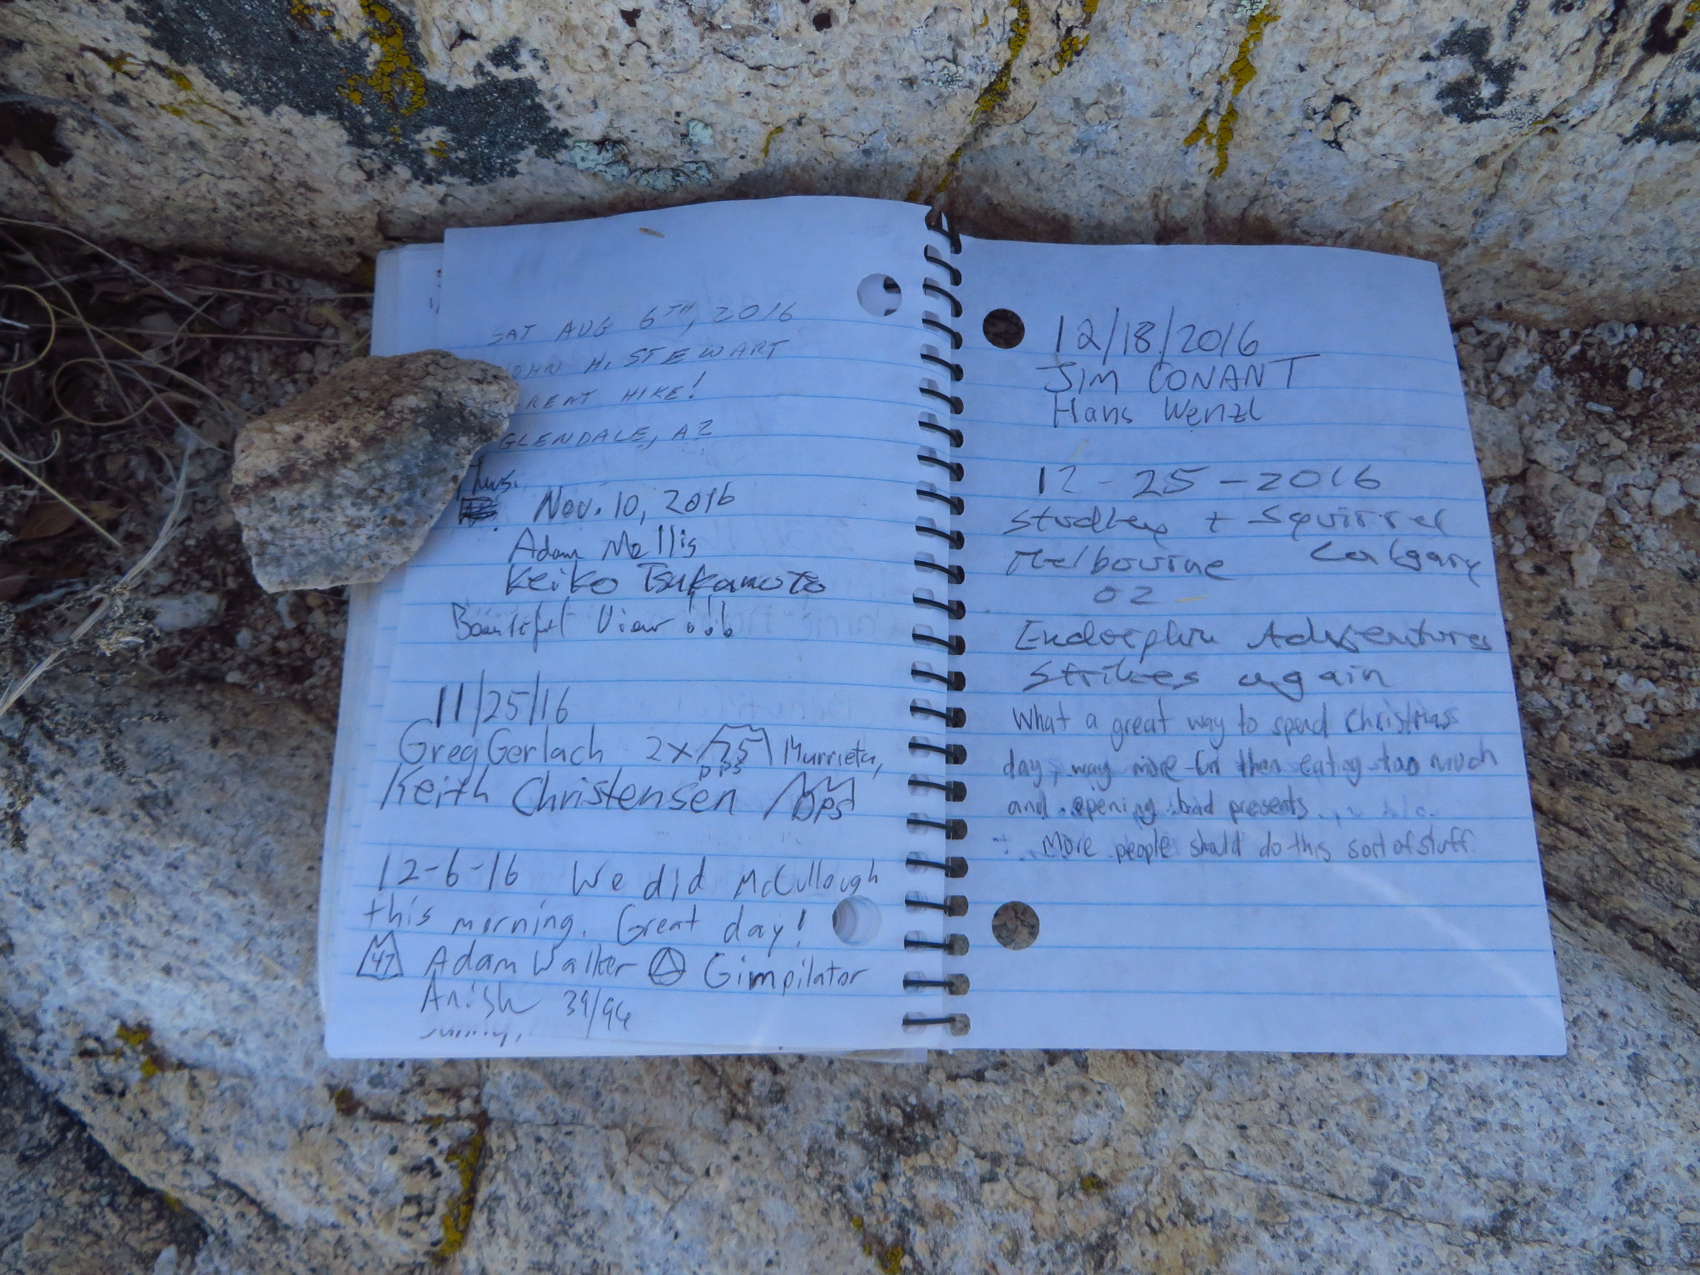 SAT AUG 6TH, 2016
JOHN H. STEWART
HIKE!
GLENDALE, AZ
Thus.
Nov. 10, 2016
Adam Mellis
Keiko Tsukamoto
Beautiful View!!!
11/25/16
Greg Gerlach 2x 75 DPS Murrieta,
Keith Christensen DPS
12-6-16 We did McCullough
this morning. Great day!
47 Adam Walker A Gimpilator
Anish 39/96
12/18/2016
JIM CONANT
Hans Wenzl
12-25-2016
+ Squirrel
Melbourne Calgary
OZ
Endorphin Adventures
Strikes again
What a great way to spend Christmas
day, way more fun then eating too much
and opening bad presents
More people should do this sort of stuff.